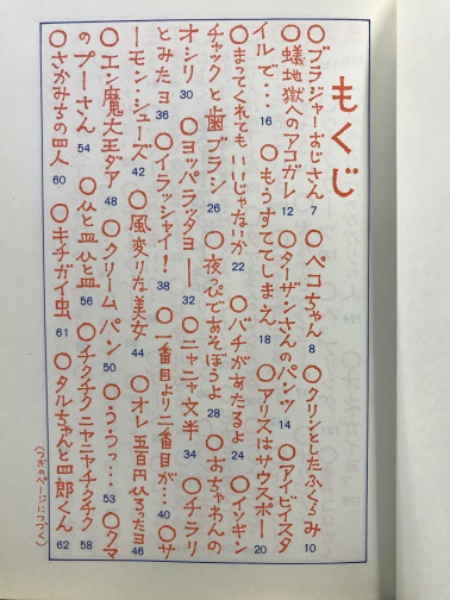 もくじ
○ブラジャーおじさん 7 ○ペコちゃん 8 ○クリンとしたふくろみ 10
○蟻地獄へのアコガレ 12 ○ターザンさんのパンツ 14 ○アイビイスタ
イルで・・・ 16 ○もうすててしまえ 18 ○アリスはサウスポー 20
○まってくれても いいじゃないか 22 ○バチがあたるよ 24 ○イッキン
チャックと歯ブラシ 26 ○夜っぴであそぼうよ 28 ○おちゃわんの
オシリ 30 ○ヨッパラッタョー 32 ○ニャニャ文半 34 ○チラリ
とみたヨ 36 ○イラッシャイ! 38 ○一番目より二番目が・・・ 40 ○サ
ーモン・シューズ 42 ○風変りな美女 44 ○オレ五百円ひろったヨ 46
○エン魔大王ダア 48 ○クリーム パン 50 ○ううっ・・・ 53 ○クマ
のプーさん 54 ○ひと皿ひと皿 56 ○チクチクニャニャチクチク 58
○さかみちの四人 60 ○キチガイ虫 61 ○タルちゃんと四郎くん 62
(つぎのページにつづく)